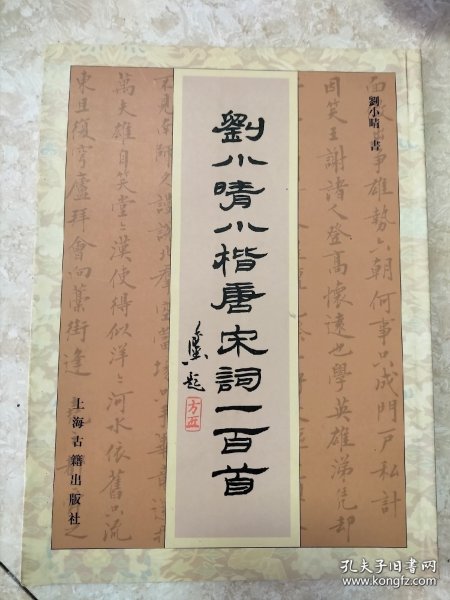 劉小晴 書
面爭雄勢六朝何事只成門戶私計
因笑王謝諸人登高懷遠也學英雄涕凭却
劉小晴小楷唐宋詞一百首
題
不見南師久謾說北群
萬夫雄自笑堂〻漢使得似洋〻河水依舊只流
東且復穹廬拜會向藁街逢
上海古籍出版社
孔夫子旧书网
www.kongfz.com